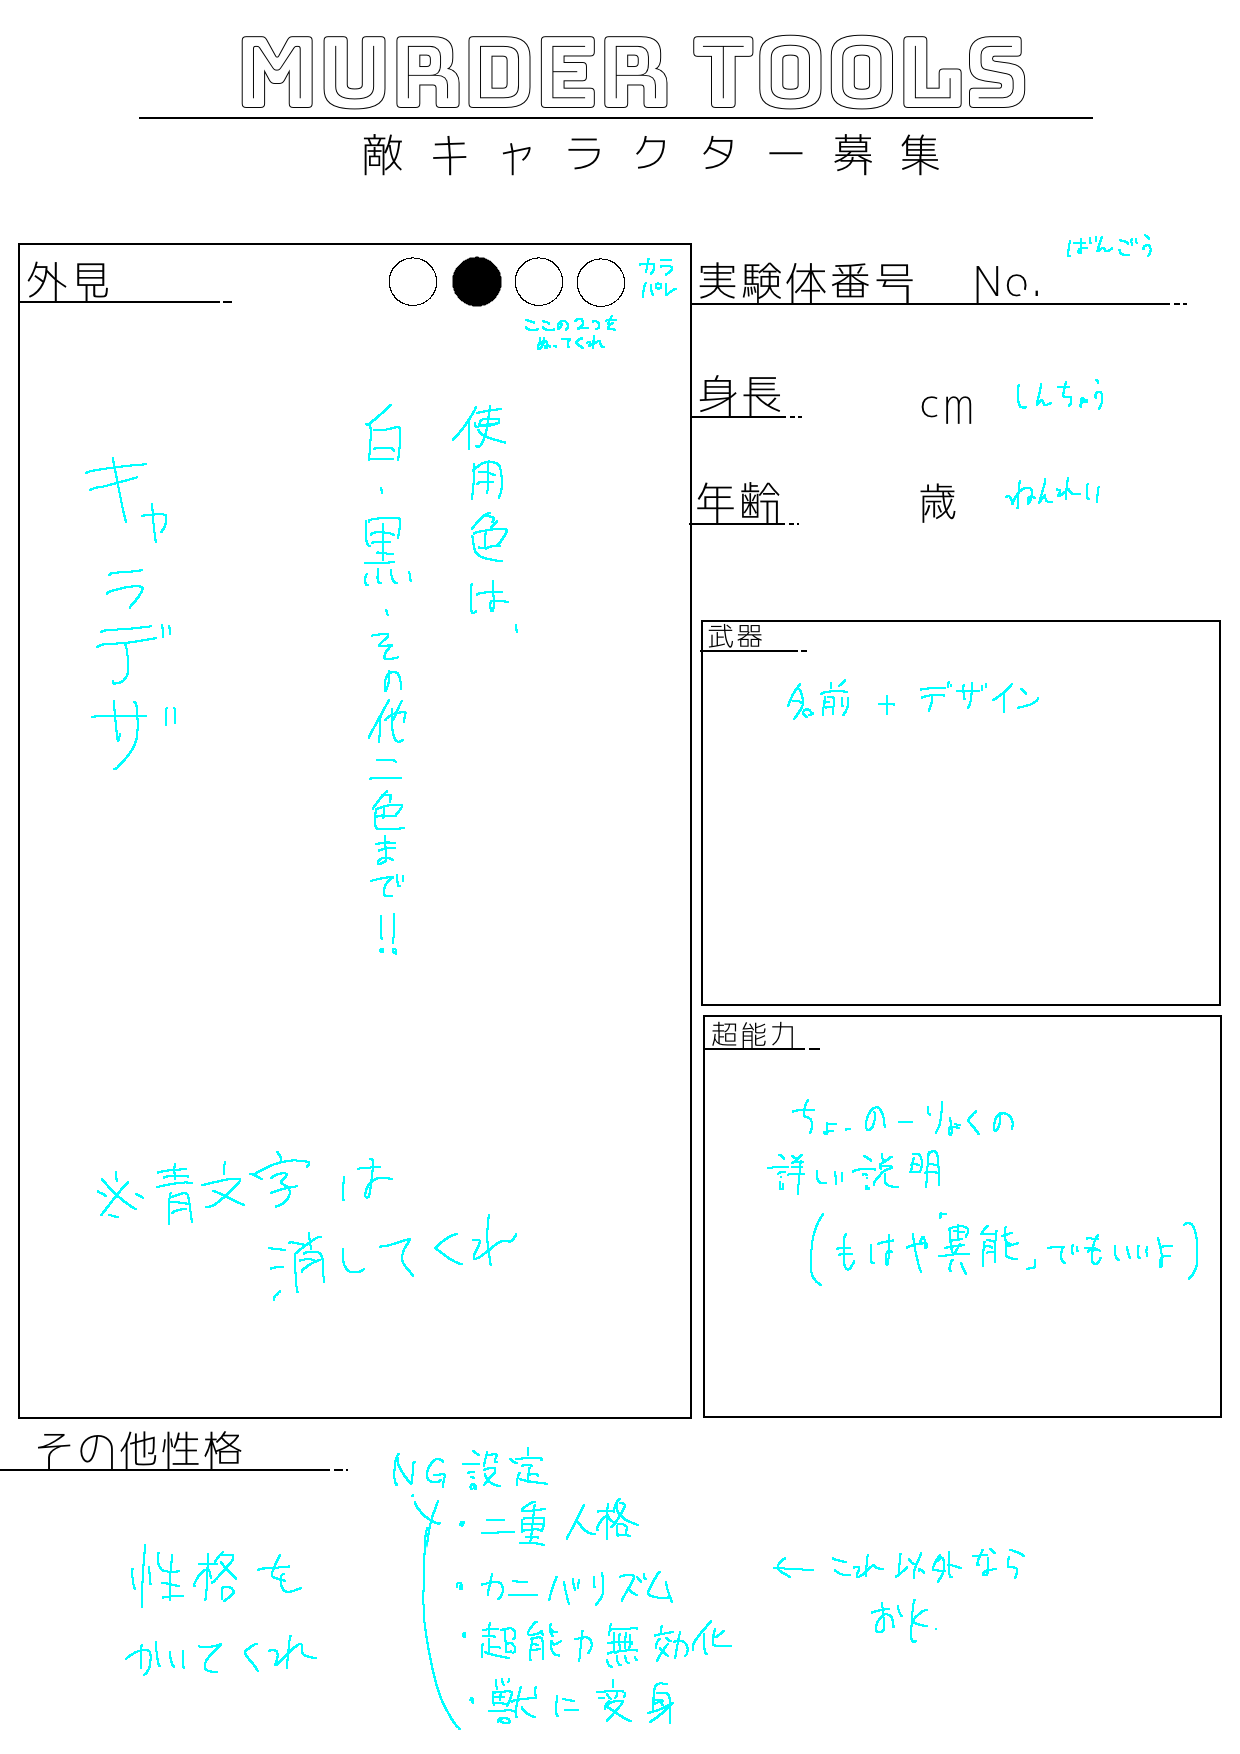 MURDER TOOLS
敵キャラクター募集
外見
カラ
パレ
ここの2つを
ぬってくれ
使用色は、
白・黒・その他二色まで!!
キャラデザ
※青文字は
消してくれ
実験体番号 No.
ばんごう
身長 cm
しんちょう
年齢 歳
ねんれい
武器
名前 + デザイン
超能力
ちょーのーりょくの
詳しい説明
(もはや「異能」でもいいよ)
その他性格
性格を
かいてくれ
NG設定
・二重人格
・カニバリズム
・超能力無効化
・獣に変身
← これ以外なら
おk.